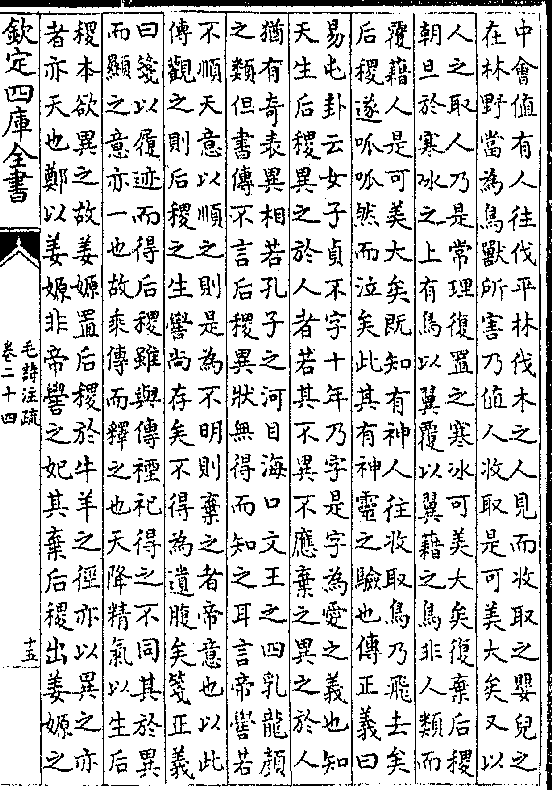 中會值有人往伐平林伐木之人見而收取之嬰兒之
在林野當為鳥獸所害乃值人收取是可美大矣又以
人之取人乃是常理復置之寒冰可美大矣復棄后稷
朝旦於寒冰之上有鳥以翼覆以翼藉之鳥非人類而
覆藉人是可美大矣既知有神人往收取鳥乃飛去矣
后稷遂呱呱然而泣矣此其有神靈之驗也傳正義曰
易屯卦云女子貞不字十年乃字是字為愛之義也知
天生后稷異之於人者若其不異不應棄之異之於人
猶有奇表異相若孔子之河目海口文王之四乳龍顏
之類但書傳不言后稷異狀無得而知之耳言帝嚳若
不順天意以順之則是為不明則棄之者帝意也以此
傳觀之則后稷之生嚳尚存矣不得為遺腹矣箋正義
曰箋以履迹而得后稷雖與傳禋祀得之不同其於異
而顯之意亦一也故乘傳而釋之也天降精氣以生后
稷本欲異之故姜嫄置后稷於牛羊之徑亦以異之亦
者亦天也鄭以姜嫄非帝嚳之妃其棄后稷出姜嫄之
欽定四庫全書
毛詩注疏
卷二十四
十五